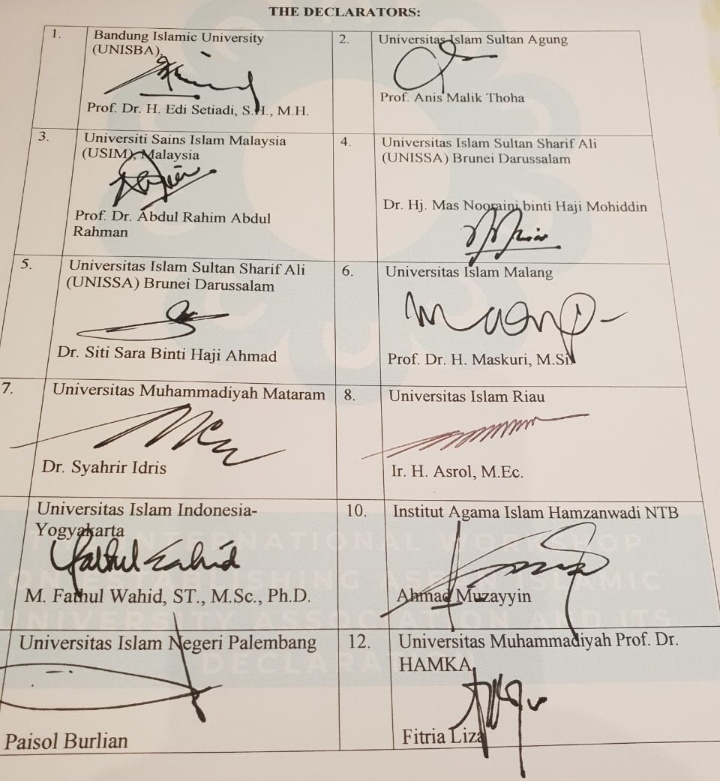 THE DECLARATORS:
1.
Bandung Islamic University
(UNISBA)
Prof. Dr. H. Edi Setiadi, S.H., M.H.
2.
Universitas Islam Sultan Agung
Prof. Anis Malik Thoha
3.
Universiti Sains Islam Malaysia
(USIM), Malaysia
Prof. Dr. Abdul Rahim Abdul
Rahman
4.
Universitas Islam Sultan Sharif Ali
(UNISSA) Brunei Darussalam
Dr. Hj. Mas Nooraini binti Haji Mohiddin
5.
Universitas Islam Sultan Sharif Ali
(UNISSA) Brunei Darussalam
Dr. Siti Sara Binti Haji Ahmad
6.
Universitas Islam Malang
Prof. Dr. H. Maskuri, M.Si
7.
Universitas Muhammadiyah Mataram
Dr. Syahrir Idris
8.
Universitas Islam Riau
Ir. H. Asrol, M.Ec.
Universitas Islam Indonesia-
Yogyakarta
Fathul Wahid
M. Fathul Wahid, ST., M.Sc., Ph.D.
10.
Institut Agama Islam Hamzanwadi NTB
Ahmad Muzayyin
Universitas Islam Negeri Palembang
Paisol Burlian
12.
Universitas Muhammadiyah Prof. Dr.
HAMKA
Fitria Liza
INTERNATIONAL WORKSHOP
ON ESTABLISHING ASEAN ISLAMIC
UNIVERSITY ASSOCIATION AND ITS
DECLARATION